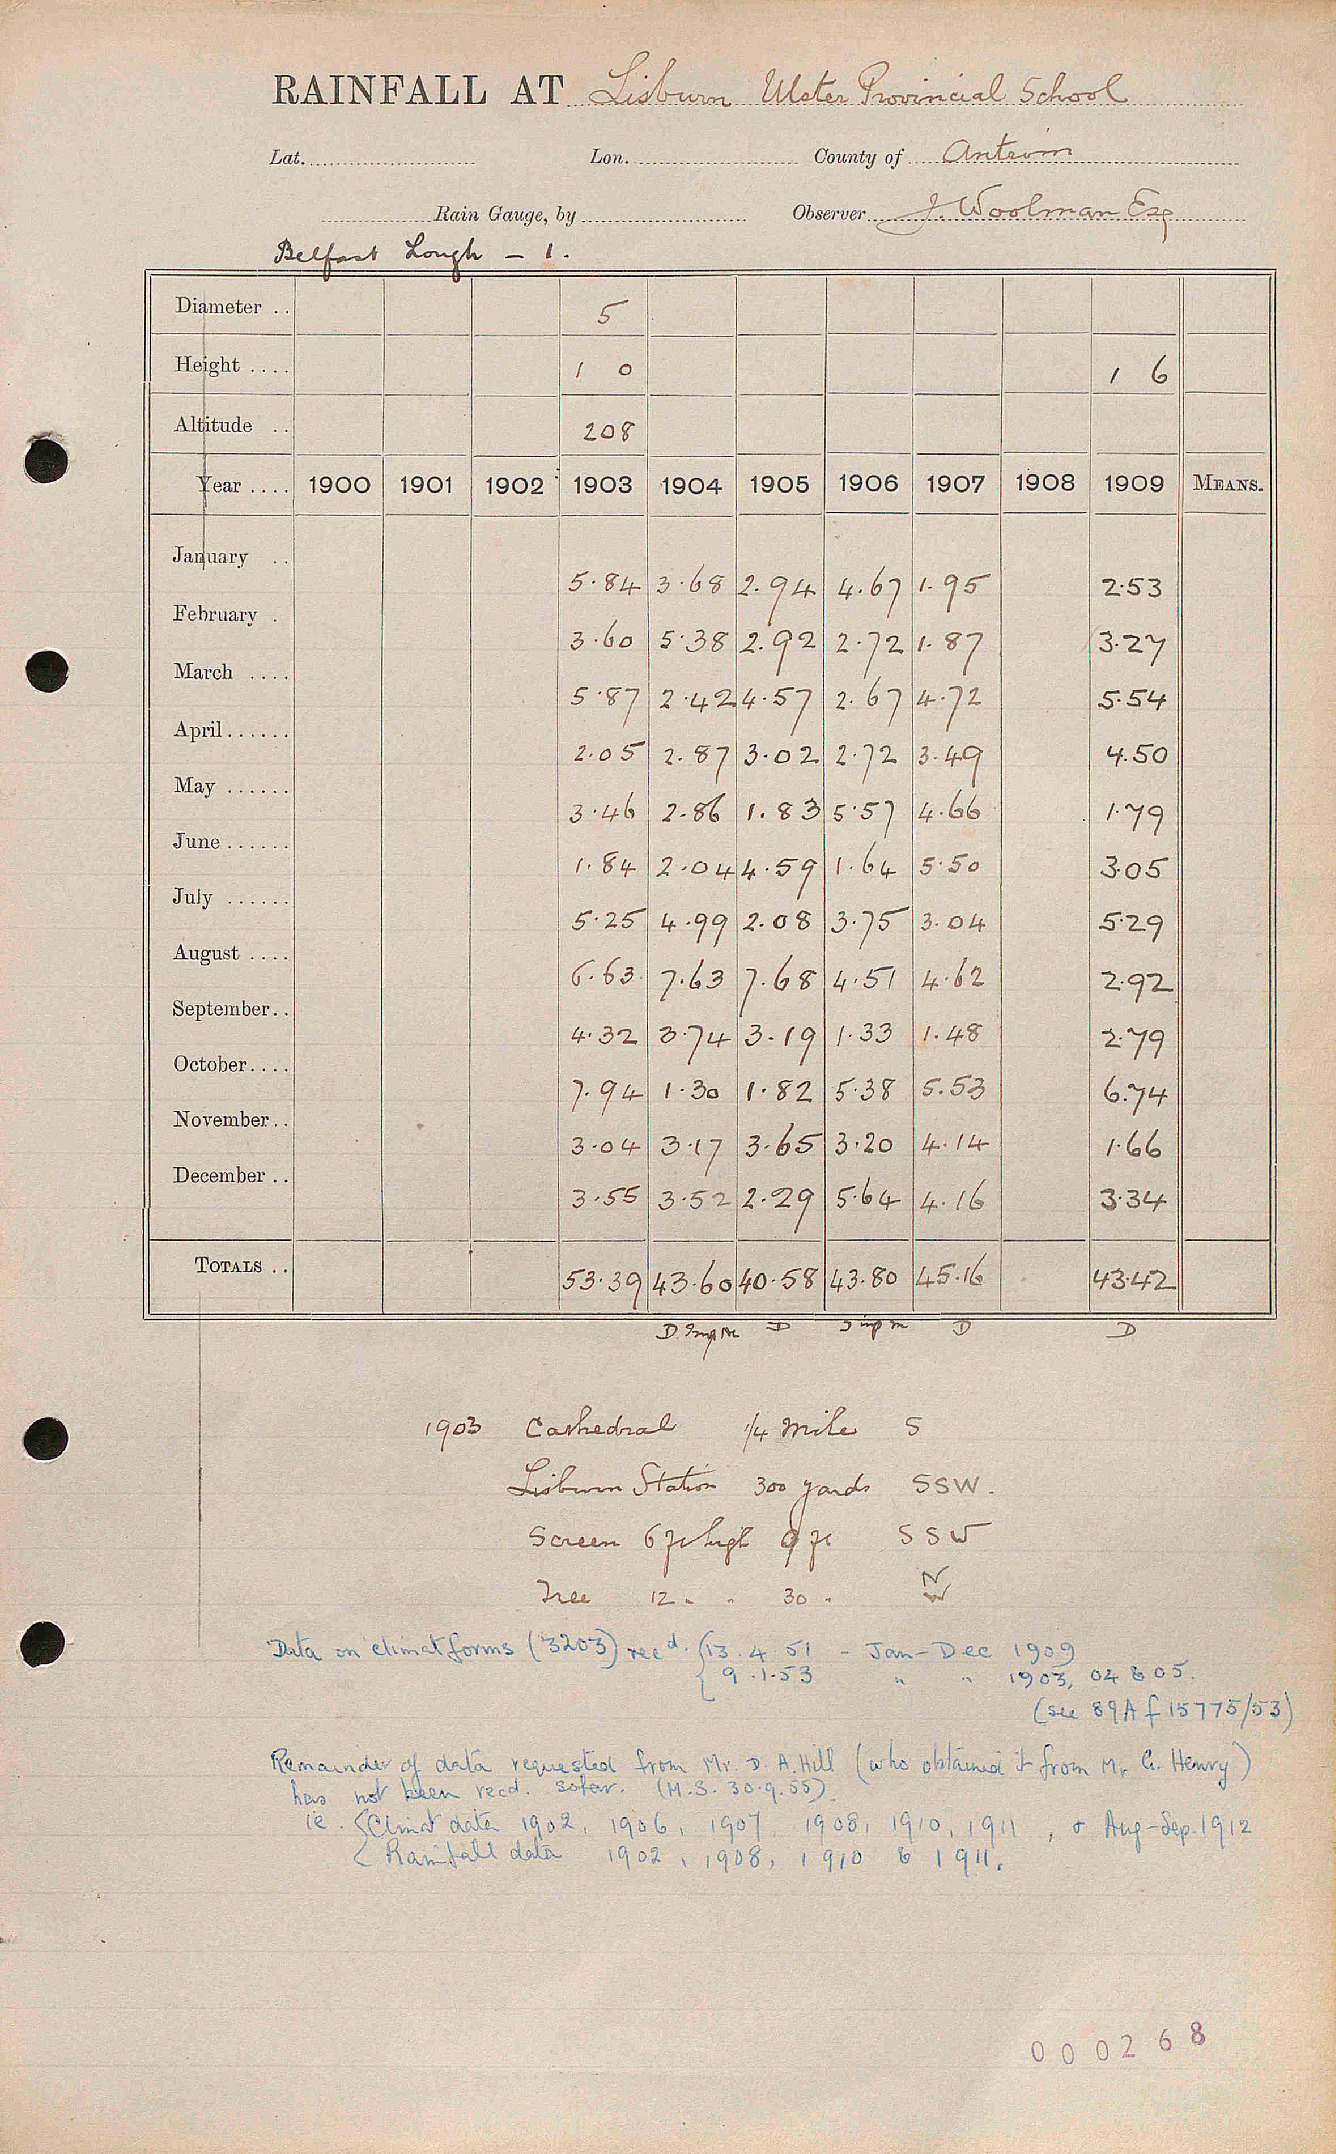 RAINFALL AT Lisburn Ulster Provincial School
Lat. Lon. County of Antrim
Rain Gauge, by Observer J. Woolman Esq
Belfast Lough - 1.
Diameter .. 5
Height .... 1 0 1 6
Altitude .. 208
Year .... 1900 1901 1902 1903 1904 1905 1906 1907 1908 1909 MEANS.
January .. 5.84 3.68 2.94 4.67 1.95 2.53
February . 3.60 5.38 2.92 2.72 1.87 3.27
March .... 5.87 2.42 4.57 2.67 4.72 5.54
April...... 2.05 2.87 3.02 2.72 3.49 4.50
May ...... 3.46 2.86 1.83 5.57 4.66 1.79
June ...... 1.84 2.04 4.59 1.64 5.50 3.05
July ...... 5.25 4.99 2.08 3.75 3.04 5.29
August .... 6.63 7.63 7.68 4.51 4.62 2.92
September.. 4.32 3.74 3.19 1.33 1.48 2.79
October.... 7.94 1.30 1.82 5.38 5.53 6.74
November.. 3.04 3.17 3.65 3.20 4.14 1.66
December .. 3.55 3.52 2.29 5.64 4.16 3.34
TOTALS .. 53.39 43.60 40.58 43.80 45.16 43.42
D D D D
1903 Cathedral 1/4 Mile S
Lisburn Station 300 yards SSW.
Screen 6 ft high 9 ft SSW
Tree 12 " " 30 "
Data on climat forms (3203) recd. { 13.4.51 - Jan-Dec 1909
9.1.53 " " 1903, 04 & 05.
(see 89A f 15775/53)
Remainder of data requested from Mr. D. A. Hill (who obtained it from Mr G. Henry)
has not been recd. sofar. (M.S. 30.9.55).
ie. { Climat data 1902, 1906, 1907 1908, 1910, 1911, & Aug-Sep. 1912
{ Rainfall data 1902, 1908, 1910 & 1911.
000268